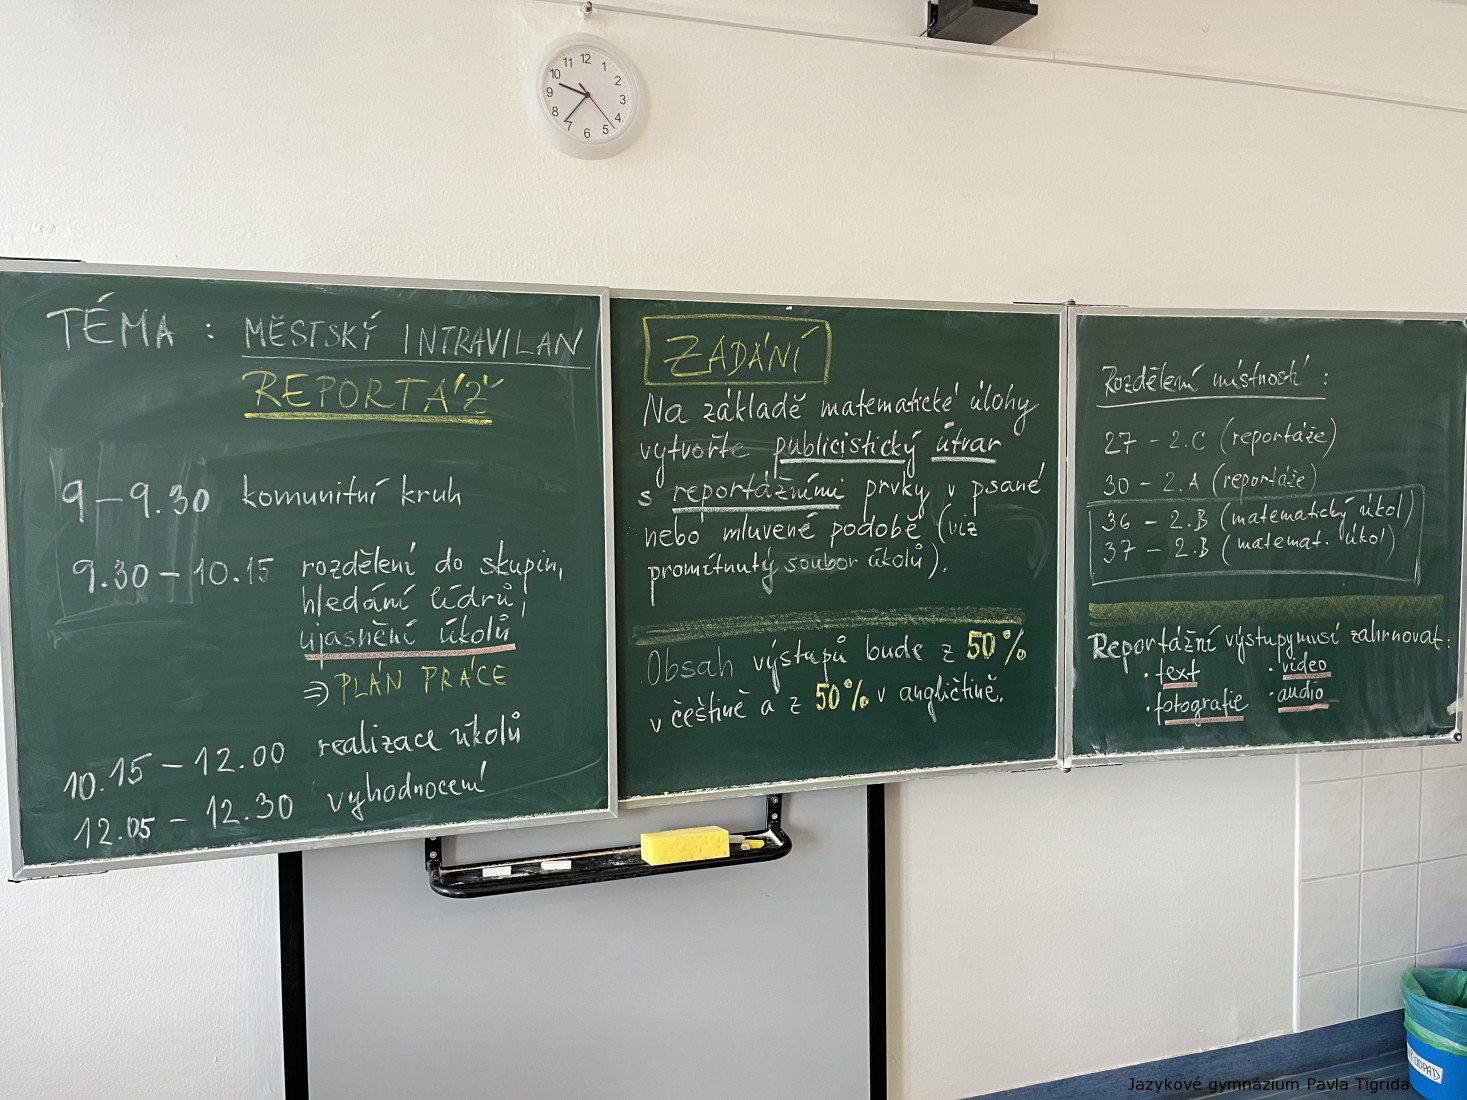 12
1
2
3
4
5
6
7
8
9
10
11
TÉMA : MĚSTSKÝ INTRAVILAN
REPORTÁŽ
9 – 9.30 komunitní kruh
9.30 – 10.15 rozdělení do skupin,
hledání lídrů,
ujasnění úkolů
⇒ PLÁN PRÁCE
10.15 – 12.00 realizace úkolů
12.05 – 12.30 vyhodnocení
ZADÁNÍ
Na základě matematické úlohy
vytvořte publicistický útvar
s reportážními prvky v psané
nebo mluvené podobě (viz
promítnutý soubor úkolů).
Obsah výstupů bude z 50%
v češtině a z 50% v angličtině.
Rozdělení místností :
27 – 2.C (reportáže)
30 – 2.A (reportáže)
36 – 2.B (matematický úkol)
37 – 2.B (matemat. úkol)
Reportážní výstupy musí zahrnovat:
· text · video
· fotografie · audio
ODPAD
Jazykové gymnázium Pavla Tigrida